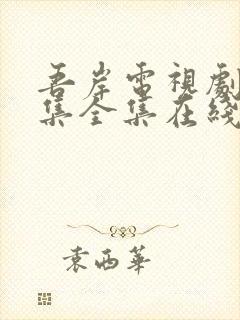 吾岸電視劇
集全集在綫
袁西華